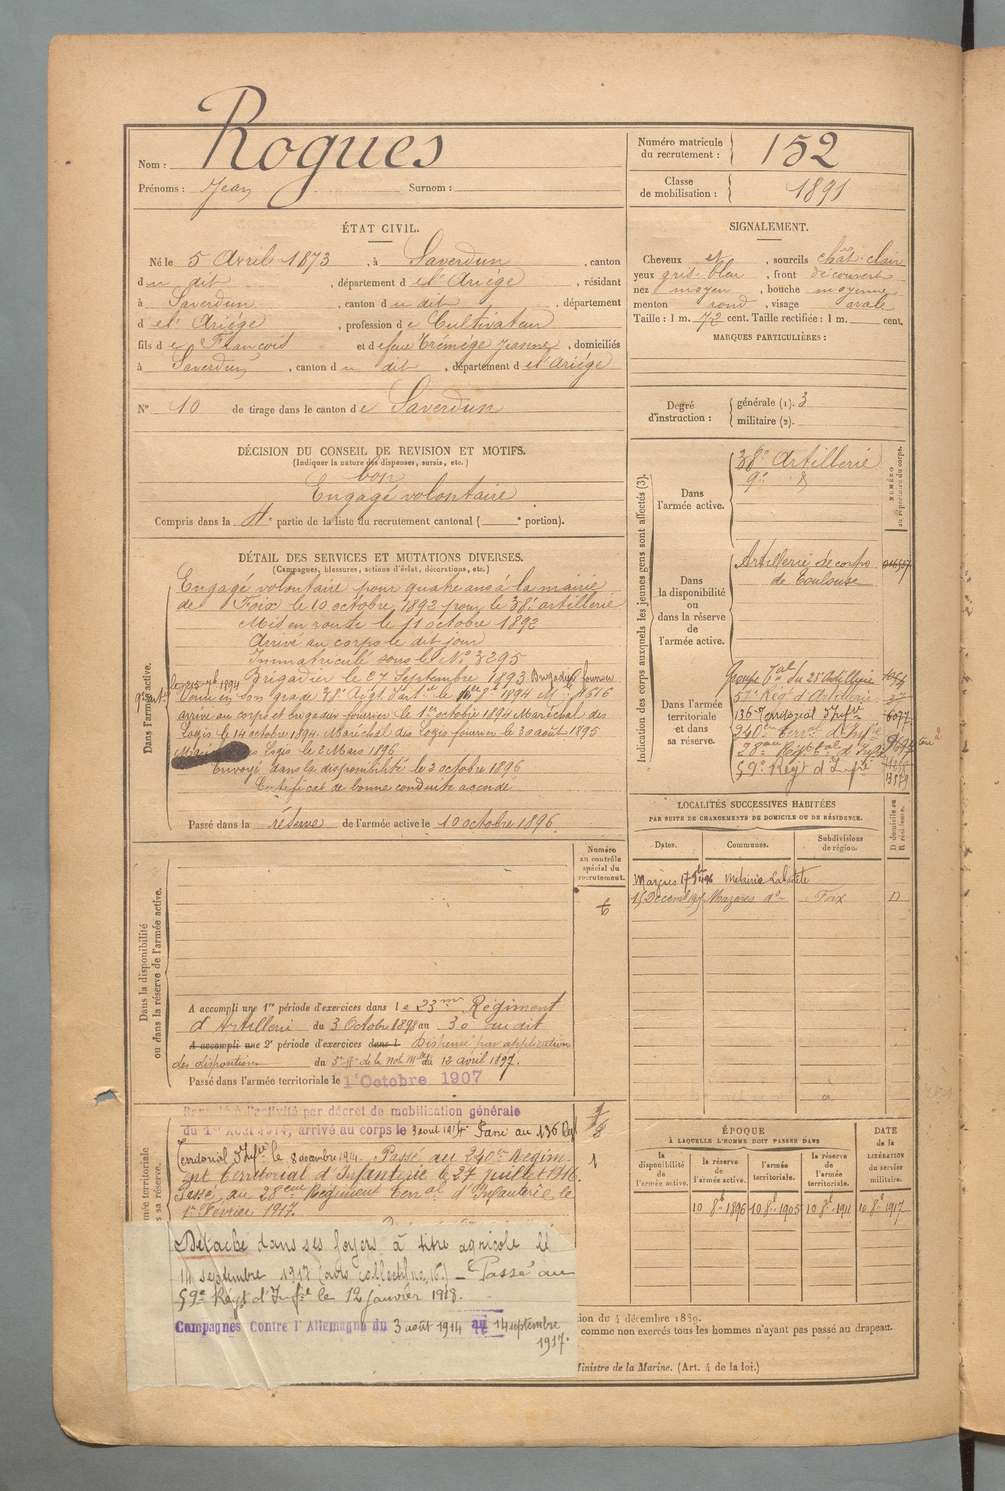 Nom : Rogues
Prénoms : Jean Surnom :
Numéro matricule du recrutement : 152
Classe de mobilisation : 1891
ÉTAT CIVIL.
Né le 5 Avril 1873, à Saverdun, canton
du dit, département de l'Ariège, résidant
à Saverdun, canton du dit, département
de l'Ariège, profession de Cultivateur
fils de François et de feue Trémège Jeanne, domiciliés
à Saverdun, canton du dit, département de l'Ariège
N° 10 de tirage dans le canton de Saverdun
SIGNALEMENT.
Cheveux et, sourcils chât. clair
yeux gris-bleu, front découvert
nez moyen, bouche moyenne
menton rond, visage ovale
Taille : 1 m. 72 cent. Taille rectifiée : 1 m. cent.
MARQUES PARTICULIÈRES :
Degré d'instruction : générale (1). 3
militaire (2).
DÉCISION DU CONSEIL DE REVISION ET MOTIFS.
(Indiquer la nature des dispenses, sursis, etc.)
bon
Engagé volontaire
Compris dans la 4e partie de la liste du recrutement cantonal ( e portion).
DÉTAIL DES SERVICES ET MUTATIONS DIVERSES.
(Campagnes, blessures, actions d'éclat, décorations, etc.)
Dans l'armée active.
Engagé volontaire pour quatre ans à la mairie
de Foix le 10 octobre 1892 pour le 38e artillerie
Mis en route le 11 octobre 1892
Arrivé au corps le dit jour
Immatriculé sous le N° 3295
Brigadier le 27 Septembre 1893 Brigadier fourrier
arrivé au corps et brigadier fourrier le 1er octobre 1894 Maréchal des
Logis le 14 octobre 1894. Maréchal des Logis fourrier le 30 août 1895
Logis le 2 Mars 1896
Envoyé dans la disponibilité le 3 octobre 1896
Certificat de bonne conduite accordé
Passé dans la réserve de l'armée active le 10 octobre 1896
Indication des corps auxquels les jeunes gens sont affectés (3).
NUMÉRO au répertoire du corps.
Dans l'armée active.
38e Artillerie
9e
Dans la disponibilité ou dans la réserve de l'armée active.
Artillerie de corps
de Toulouse
Dans l'armée territoriale et dans sa réserve.
57e Régt d'Artillerie
136e Territorial d'Infie
6077
240e Terr. d'Infie
28eme Régt Tal d'Infie
59e Régt d'Infie
LOCALITÉS SUCCESSIVES HABITÉES
PAR SUITE DE CHANGEMENTS DE DOMICILE OU DE RÉSIDENCE.
Dates. Communes. Subdivisions de région. D domicile ou R résidence.
15 Décemb Mazères Foix D
Dans la disponibilité ou dans la réserve de l'armée active.
Numéro au contrôle spécial du recrutement.
A accompli une 1re période d'exercices dans le 23me Régiment
d'Artillerie du 3 Octobre 1898 au 30 dudit
A accompli une 2e période d'exercices dans l Dispensé par application
des dispositions du de la 12 avril 1897.
Passé dans l'armée territoriale le 1er Octobre 1907
Rappelé à l'activité par décret de mobilisation générale
du 1er Août 1914, arrivé au corps le 3 août 1914. Passé au 136 Régt
Territorial d'Infie le 8 décembre 1914. Passé au 240me Régim-
ent territorial d'Infanterie le 27 juillet 1916.
Passé au 28eme Régiment Terral d'Infanterie le
1er Février 1917.
Détaché dans ses foyers à titre agricole le
14 septembre 1917 (avis collectif no 16) – Passé au
59e Régt d'Infie le 12 janvier 1918.
Campagnes Contre l'Allemagne du 3 août 1914 au 14 septembre
1917.
ÉPOQUE
À LAQUELLE L'HOMME DOIT PASSER DANS
la disponibilité de l'armée active. la réserve de l'armée active. l'armée territoriale. la réserve de l'armée territoriale.
DATE de la LIBÉRATION du service militaire.
10 8e 1896 10 8e 1905 10 8e 1911 10 8e 1917
tion du 4 décembre 1889.
comme non exercés tous les hommes n'ayant pas passé au drapeau.
Ministre de la Marine. (Art. 4 de la loi.)